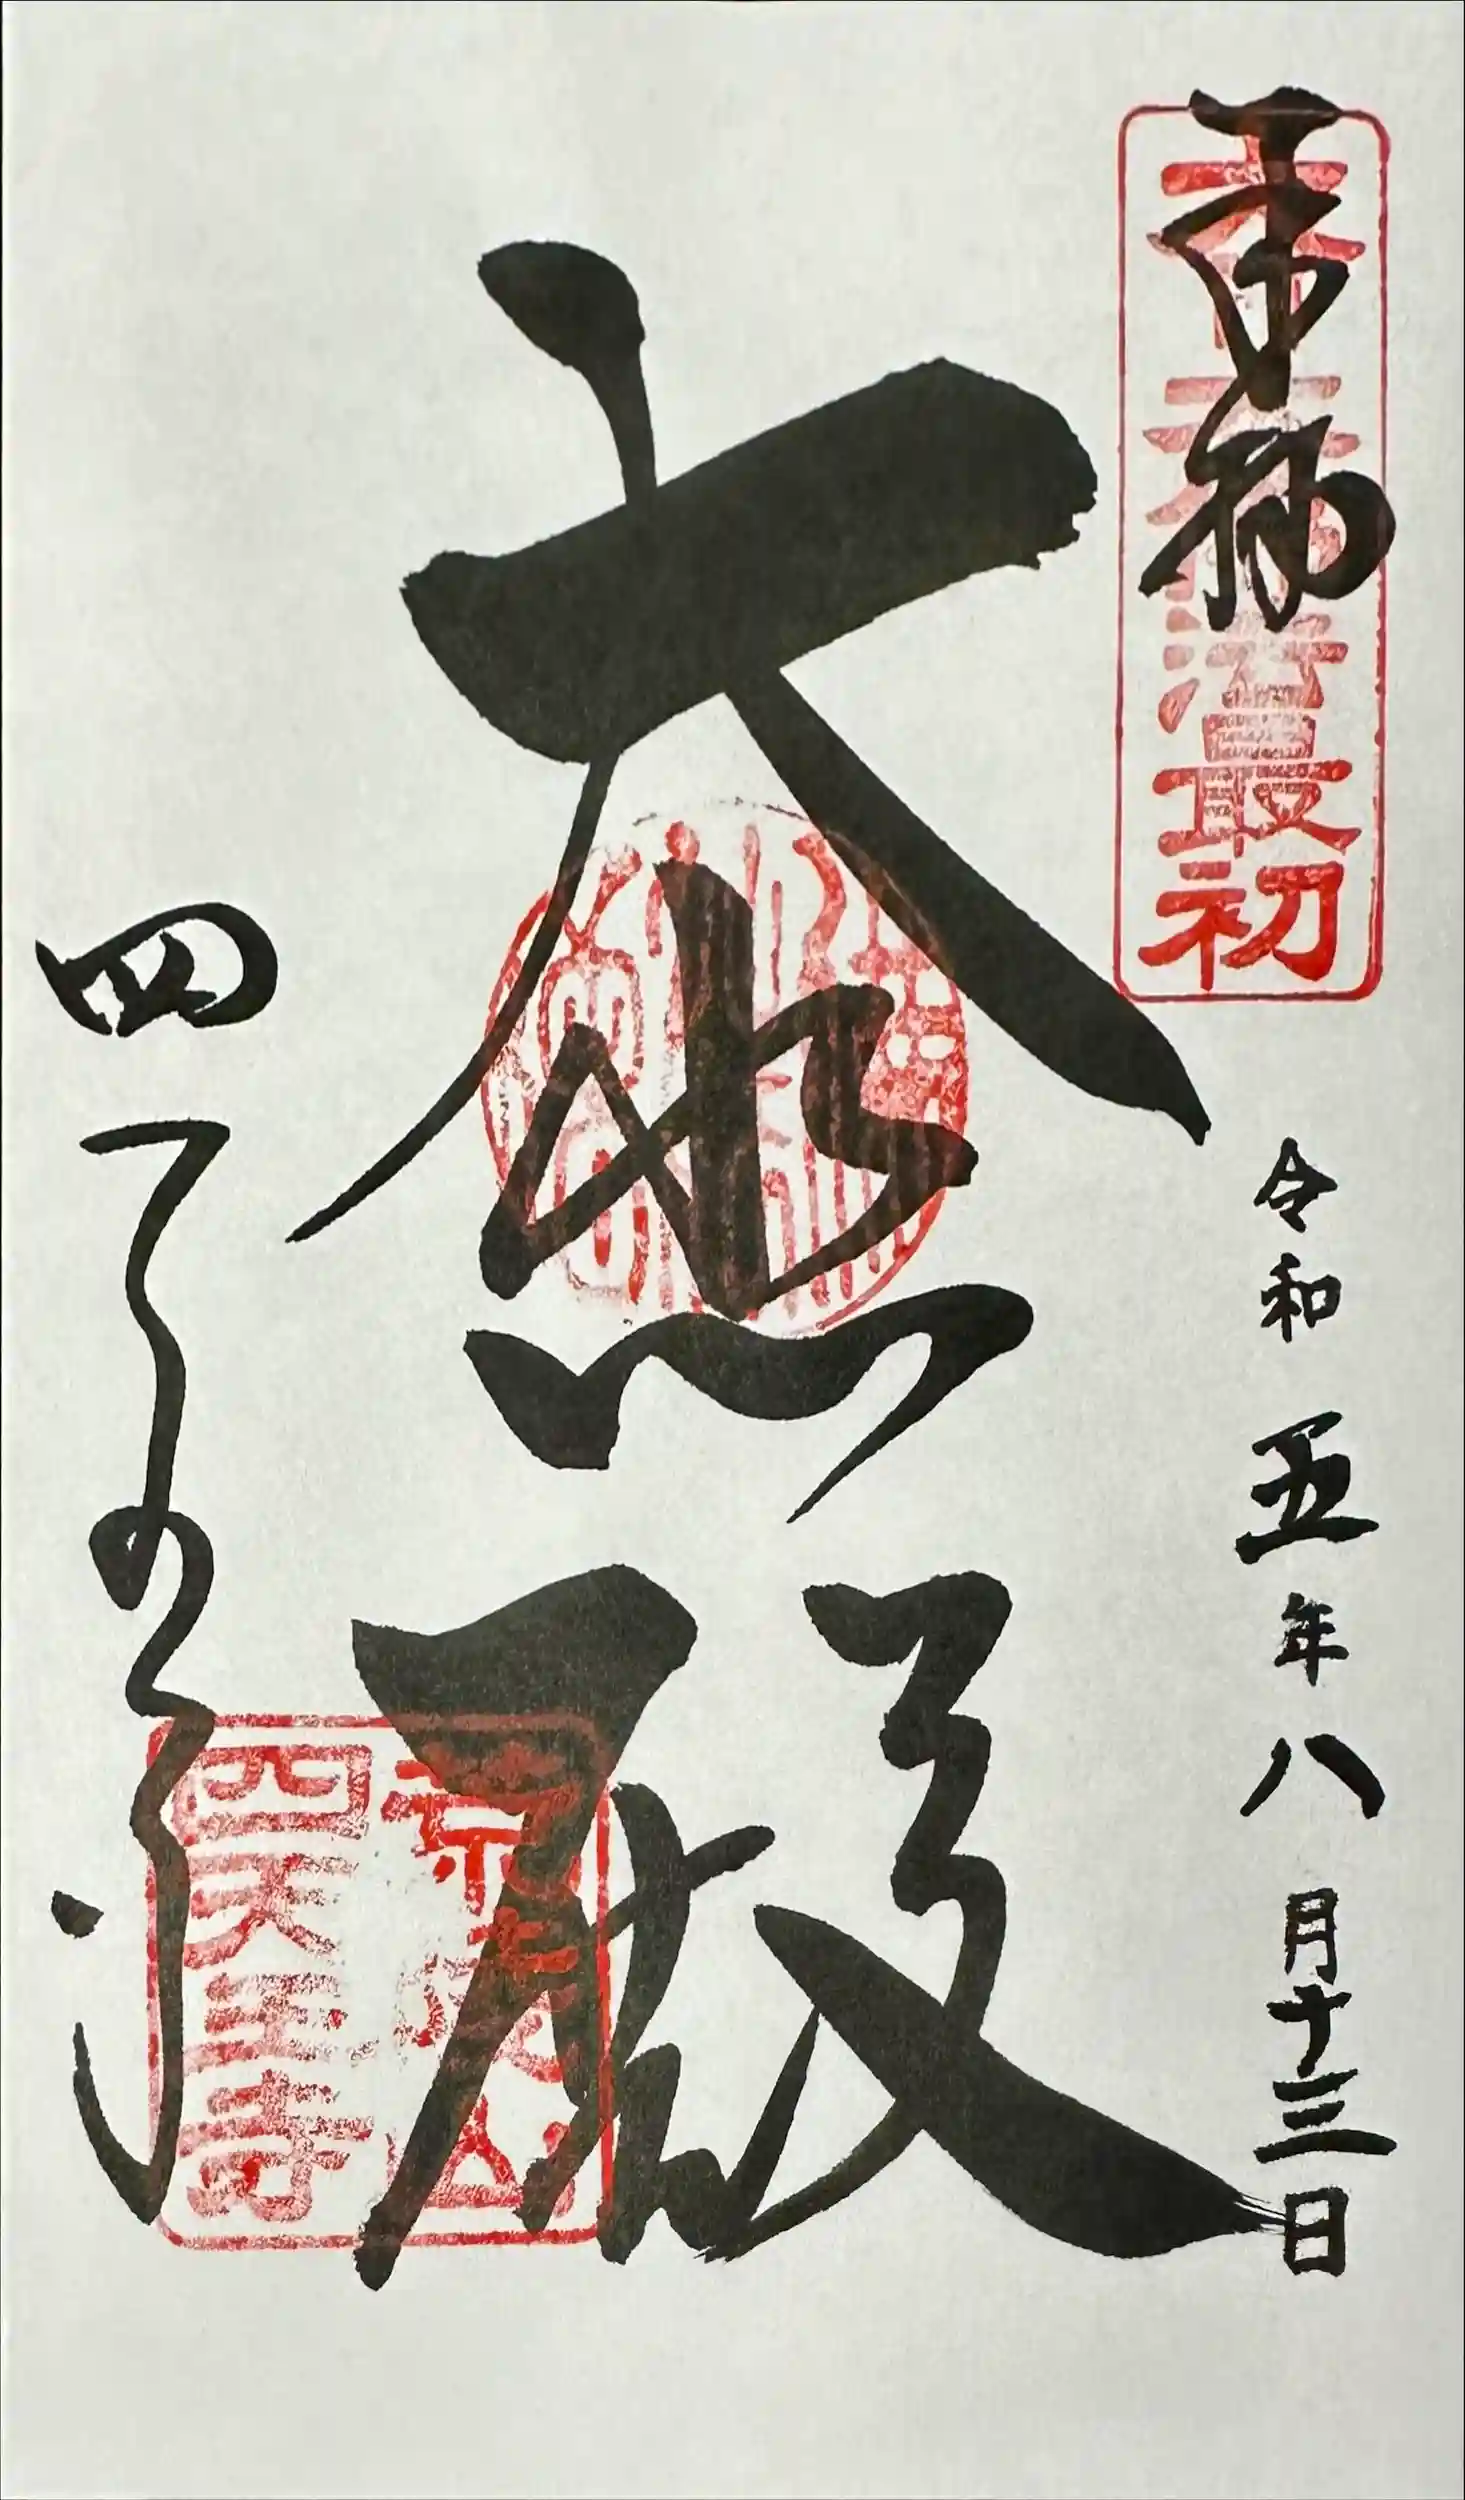 奉拝
最初
令和五年八月十三日
大悲殿
荒陵山
四天王寺
四天王寺